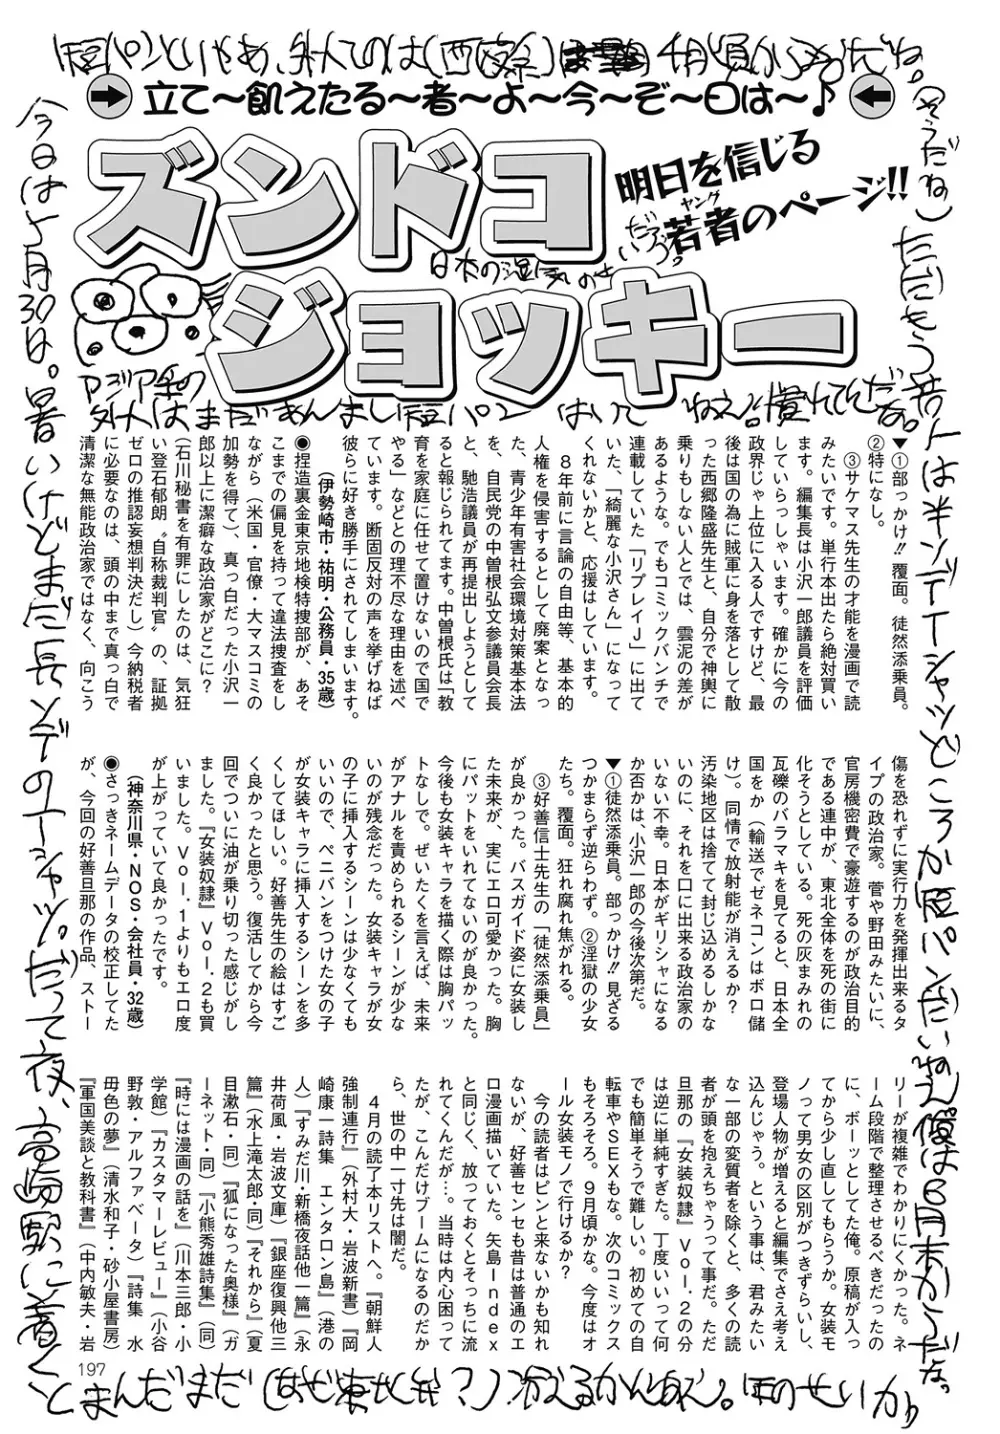 短パンといやあ、外人てのは(西欧系)
立て〜飢えたる〜者〜よ〜今〜ぞ〜日は〜♪
ズンドコ
ジョッキー
明日を信じる
若者のページ!!
ヤング
だろう。
日本の湿気のせい
今日は5月30日。暑いけどまだ長ソデのTシャツ。だって夜、高崎駅に着く
とまんだまだ(なぜ東北弁?)冷えるかんねえ。
アジア系の
外人はまだあんまし短パン はいて ねえ。慣れてんだな。
(そうだね)
▼①部っかけ!! 覆面。徒然添乗員。
②特になし。
③サケマス先生の才能を漫画で読
みたいです。単行本出たら絶対買い
ます。編集長は小沢一郎議員を評価
していらっしゃいます。確かに今の
政界じゃ上位に入る人ですけど、最
後は国の為に賊軍に身を落として散
った西郷隆盛先生と、自分で神輿に
乗りもしない人とでは、雲泥の差が
あるような。でもコミックバンチで
連載していた「リプレイJ」に出て
いた、「綺麗な小沢さん」になって
くれないかと、応援はしています。
8年前に言論の自由等、基本的
人権を侵害するとして廃案となっ
た、青少年有害社会環境対策基本法
を、自民党の中曽根弘文参議員会長
と、馳浩議員が再提出しようとして
ると報じられてます。中曽根氏は「教
育を家庭に任せて置けないので国で
やる」などとの理不尽な理由を述べ
ています。断固反対の声を挙げねば
彼らに好き勝手にされてしまいます。
(伊勢崎市・祐明・公務員・35歳)
◉捏造裏金東京地検特捜部が、あそ
こまでの偏見を持って違法捜査をし
ながら(米国・官僚・大マスコミの
加勢を得て)、真っ白だった小沢一
郎以上に潔癖な政治家がどこに?
(石川秘書を有罪にしたのは、気狂
い登石郁朗〝自称裁判官〟の、証拠
ゼロの推認妄想判決だし)今納税者
に必要なのは、頭の中まで真っ白で
清潔な無能政治家ではなく、向こう
傷を恐れずに実行力を発揮出来るタ
イプの政治家。菅や野田みたいに、
官房機密費で豪遊するのが政治目的
である連中が、東北全体を死の街に
化そうとしている。死の灰まみれの
瓦礫のバラマキを見てると、日本全
国をか(輸送でゼネコンはボロ儲
け)。同情で放射能が消えるか?
汚染地区は捨てて封じ込めるしかな
いのに、それを口に出来る政治家の
いない不幸。日本がギリシャになる
か否かは、小沢一郎の今後次第だ。
▼①徒然添乗員。部っかけ!! 見ざる
つかまらず逆らわず。②淫獄の少女
たち。覆面。狂れ腐れ焦がれる。
③好善信士先生の「徒然添乗員」
が良かった。バスガイド姿に女装し
た未来が、実にエロ可愛かった。胸
にパットをいれてないのが良かった。
今後も女装キャラを描く際は胸パッ
トなしで。ぜいたくを言えば、未来
がアナルを責められるシーンが少な
いのが残念だった。女装キャラが女
の子に挿入するシーンは少なくても
いいので、ペニバンをつけた女の子
が女装キャラに挿入するシーンを多
くしてほしい。好善先生の絵はすご
く良かったと思う。復活してから今
回でついに油が乗り切った感じがし
ました。『女装奴隷』Vol.2も買
いました。Vol.1よりもエロ度
が上がっていて良かったです。
(神奈川県・NOS・会社員・32歳)
◉さっきネームデータの校正してた
が、今回の好善旦那の作品、ストー
リーが複雑でわかりにくかった。ネ
ーム段階で整理させるべきだったの
に、ボーッとしてた俺。原稿が入っ
てから少し直してもらうか。女装モ
ノって男女の区別がつきずらいし、
登場人物が増えると編集でさえ考え
込んじゃう。という事は、君みたい
な一部の変質者を除くと、多くの読
者が頭を抱えちゃうって事だ。ただ
旦那の『女装奴隷』Vol.2の分
は逆に単純すぎた。丁度いいって何
でも簡単そうで難しい。初めての自
転車やSEXもな。次のコミックス
もそろそろ。9月頃かな。今度はオ
ール女装モノで行けるか?
今の読者はピンと来ないかも知れ
ないが、好善センセも昔は普通のエ
ロ漫画描いていた。矢島Index
と同じく、放っておくとそっちに流
れてくんだが…。当時は内心困って
たが、こんだけブームになるのだか
ら、世の中一寸先は闇だ。
4月の読了本リストへ。『朝鮮人
強制連行』(外村大・岩波新書)『岡
崎康一詩集 エンタロン島』(港の
人)『すみだ川・新橋夜話他一篇』(永
井荷風・岩波文庫)『銀座復興他三
篇』(水上滝太郎・同)『それから』(夏
目漱石・同)『狐になった奥様』(ガ
ーネット・同)『小熊秀雄詩集』(同)
『時には漫画の話を』(川本三郎・小
学館)『カスタマーレビュー』(小谷
野敦・アルファベータ)『詩集 水
母色の夢』(清水和子・砂小屋書房)
『軍国美談と教科書』(中内敏夫・岩
197